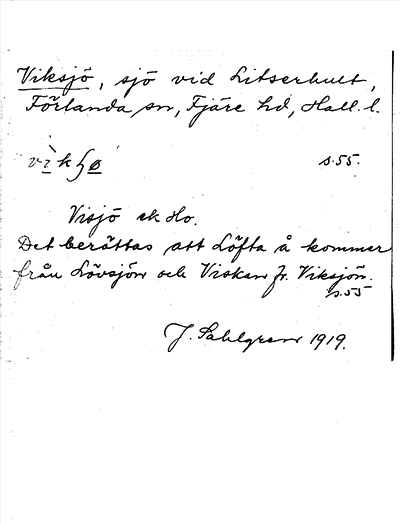 Viksjö, sjö vid Litserhult,
Förlanda sn, Fjäre hd, Hall. l.
s. 55.
Visjö ek Ho.
Det berättas att Löfta å kommer
från Lövsjön och Viskan fr. Viksjön.
s. 55
J. Sahlgren 1919.